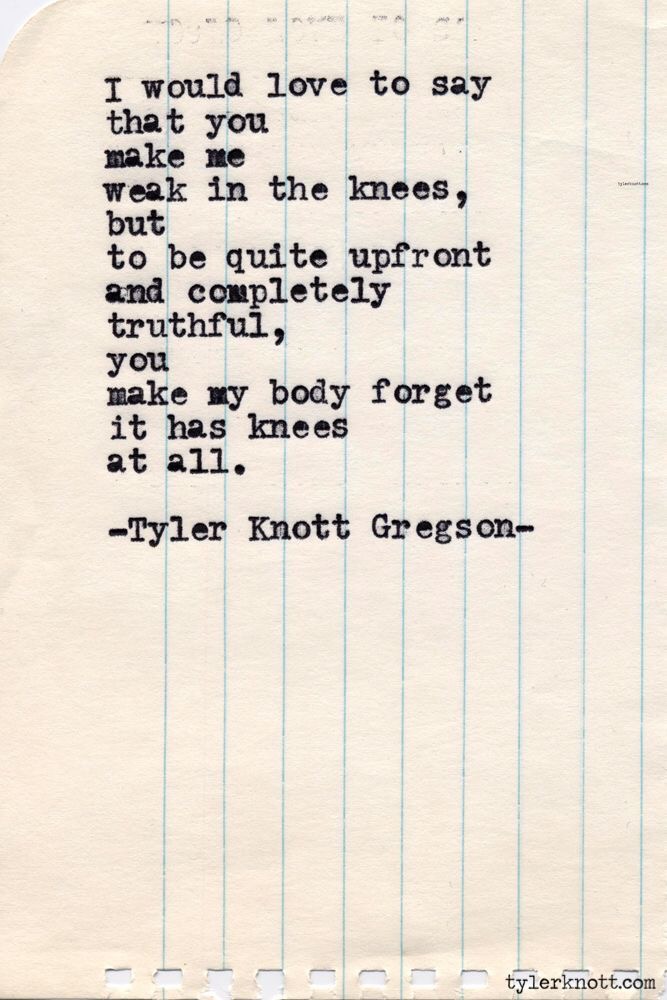 I would love to say
that you
make me
weak in the knees,
but
to be quite upfront
and completely
truthful,
you
make my body forget
it has knees
at all.
-Tyler Knott Gregson-
tylerknott.com